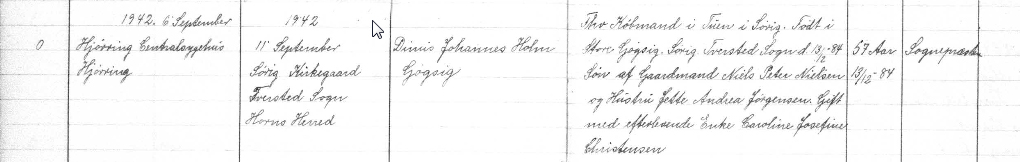 1942. 6 September
Hjørring Centralsygehus
Hjørring
1942
11 September
Sørig Kirkegaard
Tversted Sogn
Horns Herred
0
Dinis Johannes Holm
Gøgsig
Fhv Købmand i Tuen i Sørig. Født i
Store Gøgsig. Sørig Tversted Sogn d. 13/12-84
Søn af Gaardmand Niels Peter Nielsen
og Hustru Jette Andrea Jørgensen. Gift
med efterlevende Enke Caroline Josefine
Christensen
57 Aar
13/12-84
Sognepræsten